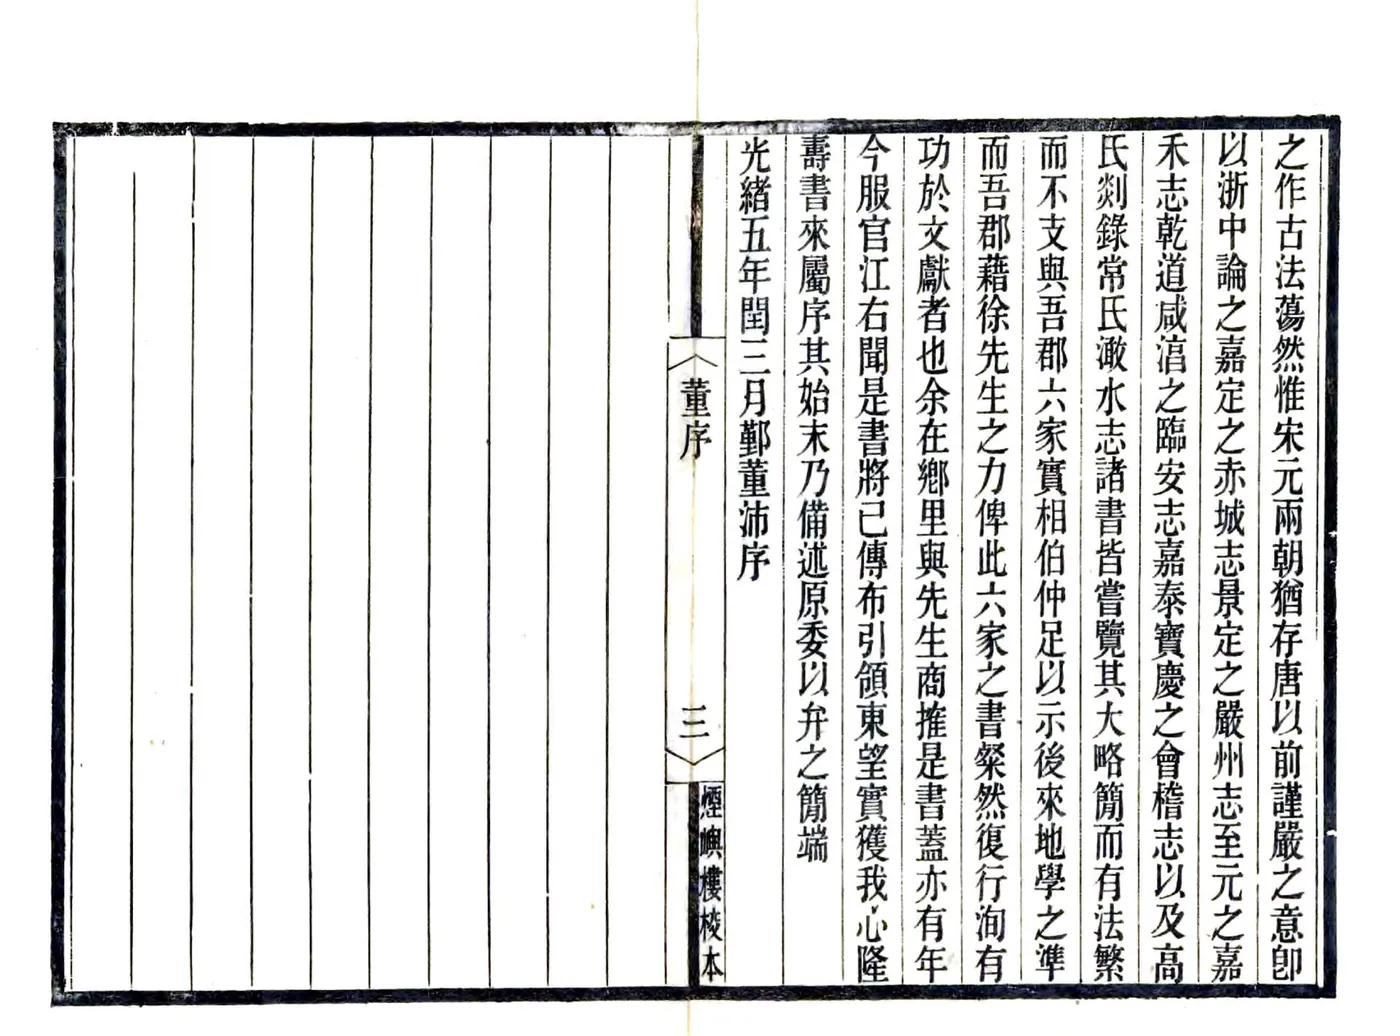 之作古法蕩然惟宋元兩朝猶存唐以前謹嚴之意卽
以浙中論之嘉定之赤城志景定之嚴州志至元之嘉
禾志乾道咸淳之臨安志嘉泰寶慶之會稽志以及高
氏剡錄常氏澉水志諸書皆嘗覽其大略簡而有法繁
而不支與吾郡六家實相伯仲足以示後來地學之準
而吾郡藉徐先生之力俾此六家之書粲然復行洵有
功於文獻者也余在鄉里與先生商搉是書蓋亦有年
今服官江右聞是書將已傳布引領東望實獲我心隆
壽書來屬序其始末乃備述原委以弁之簡端
光緒五年閏三月鄞董沛序
董序
三
煙嶼樓校本